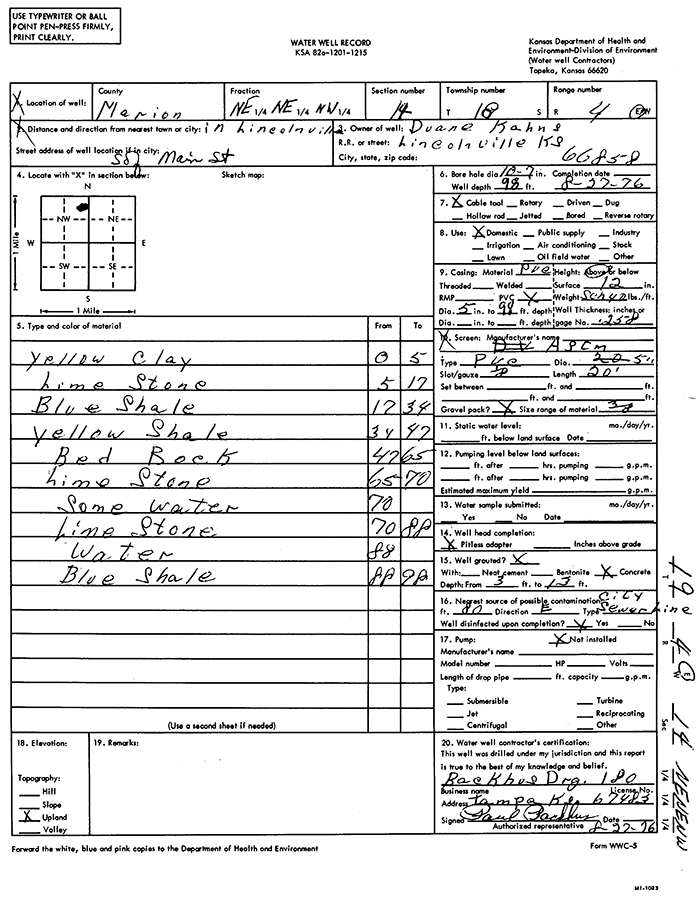 USE TYPEWRITER OR BALL
POINT PEN-PRESS FIRMLY,
PRINT CLEARLY.
WATER WELL RECORD
KSA 82a-1201-1215
Kansas Department of Health and
Environment-Division of Environment
(Water well Contractors)
Topeka, Kansas 66620
X Location of well: County Marion Fraction NE 1/4 NE 1/4 NW 1/4 Section number 14 Township number T 18 S Range number R 4 E/W
Distance and direction from nearest town or city: in Lincolnville
Street address of well location if in city: Main St
2. Owner of well: Duane Kahns
R.R. or street: Lincolnville KS
City, state, zip code: 66858
4. Locate with "X" in section below: Sketch map:
N
NW NE
W E
SW SE
S
1 Mile
1 Mile
5. Type and color of material From To
Yellow Clay 0 5
Lime Stone 5 17
Blue Shale 17 34
Yellow Shale 34 47
Bed Rock 47 65
Lime Stone 65 70
Some Water 70
Lime Stone 70 88
Water 88
Blue Shale 88 98
(Use a second sheet if needed)
6. Bore hole dia. in. Completion date
Well depth 98 ft. 8-27-76
7. X Cable tool Rotary Driven Dug
Hollow rod Jetted Bored Reverse rotary
8. Use: X Domestic Public supply Industry
Irrigation Air conditioning Stock
Lawn Oil field water Other
9. Casing: Material PVC Height: Above or below
Threaded Welded Surface 12 in.
RMP PVC X Weight lbs./ft.
Dia. 5 in. to 98 ft. depth Wall Thickness: inches or
Dia. in. to ft. depth gage No. .258
10. Screen: Manufacturer's name
Type PVC Dia.
Slot/gauze Length 20'
Set between ft. and ft.
ft. and ft.
Gravel pack? X Size range of material
11. Static water level: mo./day/yr.
ft. below land surface Date
12. Pumping level below land surfaces:
ft. after hrs. pumping g.p.m.
ft. after hrs. pumping g.p.m.
Estimated maximum yield g.p.m.
13. Water sample submitted: mo./day/yr.
Yes No Date
14. Well head completion:
X Pitless adapter Inches above grade
15. Well grouted? X
With: Neat cement Bentonite X Concrete
Depth: From 3 ft. to 13 ft.
16. Nearest source of possible contamination: City
ft. 80 Direction E Type Sewer Line
Well disinfected upon completion? X Yes No
17. Pump: X Not installed
Manufacturer's name
Model number HP Volts
Length of drop pipe ft. capacity g.p.m.
Type:
Submersible Turbine
Jet Reciprocating
Centrifugal Other
18. Elevation:
Topography:
Hill
Slope
X Upland
Valley
19. Remarks:
20. Water well contractor's certification:
This well was drilled under my jurisdiction and this report
is true to the best of my knowledge and belief.
Backhus Drg. 180
Business name License No.
Address Tampa Ks. 67483
Signed Paul Backhus Date 8-27-76
Authorized representative
Forward the white, blue and pink copies to the Department of Health and Environment
Form WWC-5
T R E/W Sec 14 1/4 1/4 1/4 NENENW